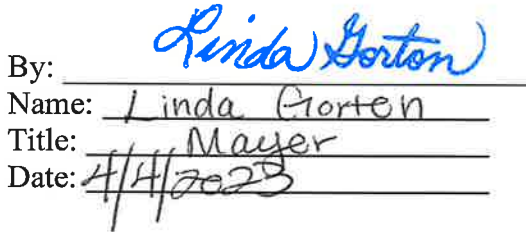 By: Linda Gorton
Name: Linda Gorten
Title: Mayer
Date: 4/4/2023